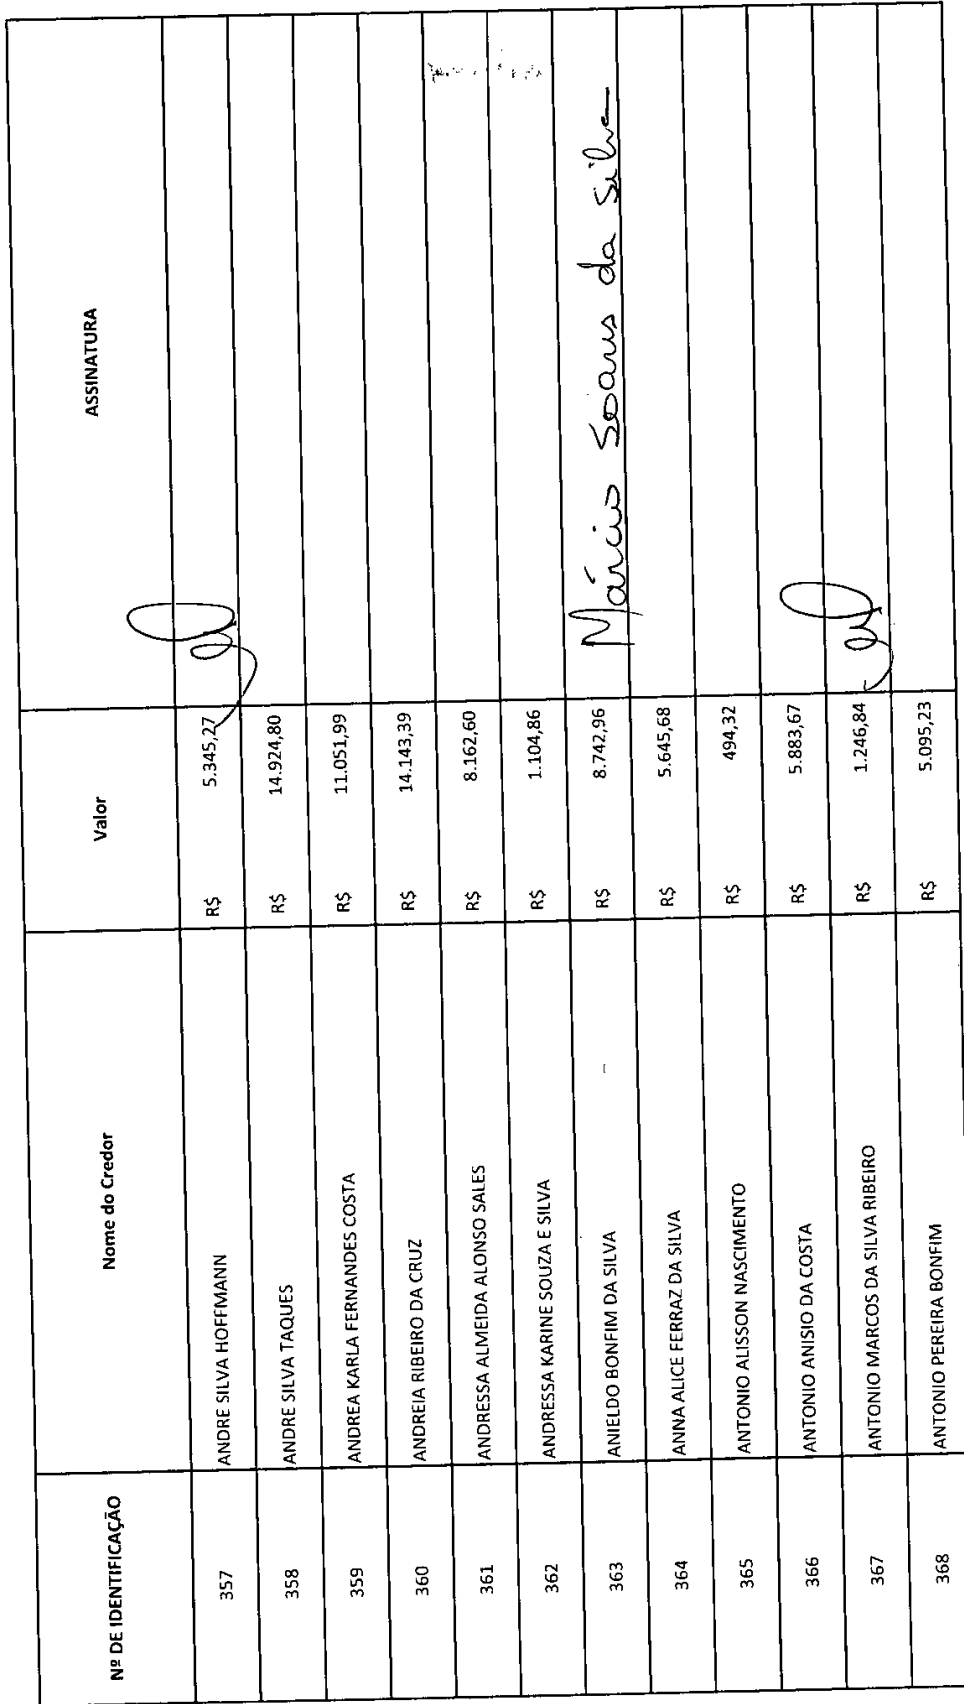 Nº DE IDENTIFICAÇÃO Nome do Credor Valor ASSINATURA
357 ANDRE SILVA HOFFMANN R$ 5.345,27
358 ANDRE SILVA TAQUES R$ 14.924,80
359 ANDREA KARLA FERNANDES COSTA R$ 11.051,99
360 ANDREIA RIBEIRO DA CRUZ R$ 14.143,39
361 ANDRESSA ALMEIDA ALONSO SALES R$ 8.162,60
362 ANDRESSA KARINE SOUZA E SILVA R$ 1.104,86
363 ANIELDO BONFIM DA SILVA R$ 8.742,96 Márcio Soares da Silva
364 ANNA ALICE FERRAZ DA SILVA R$ 5.645,68
365 ANTONIO ALISSON NASCIMENTO R$ 494,32
366 ANTONIO ANISIO DA COSTA R$ 5.883,67
367 ANTONIO MARCOS DA SILVA RIBEIRO R$ 1.246,84
368 ANTONIO PEREIRA BONFIM R$ 5.095,23